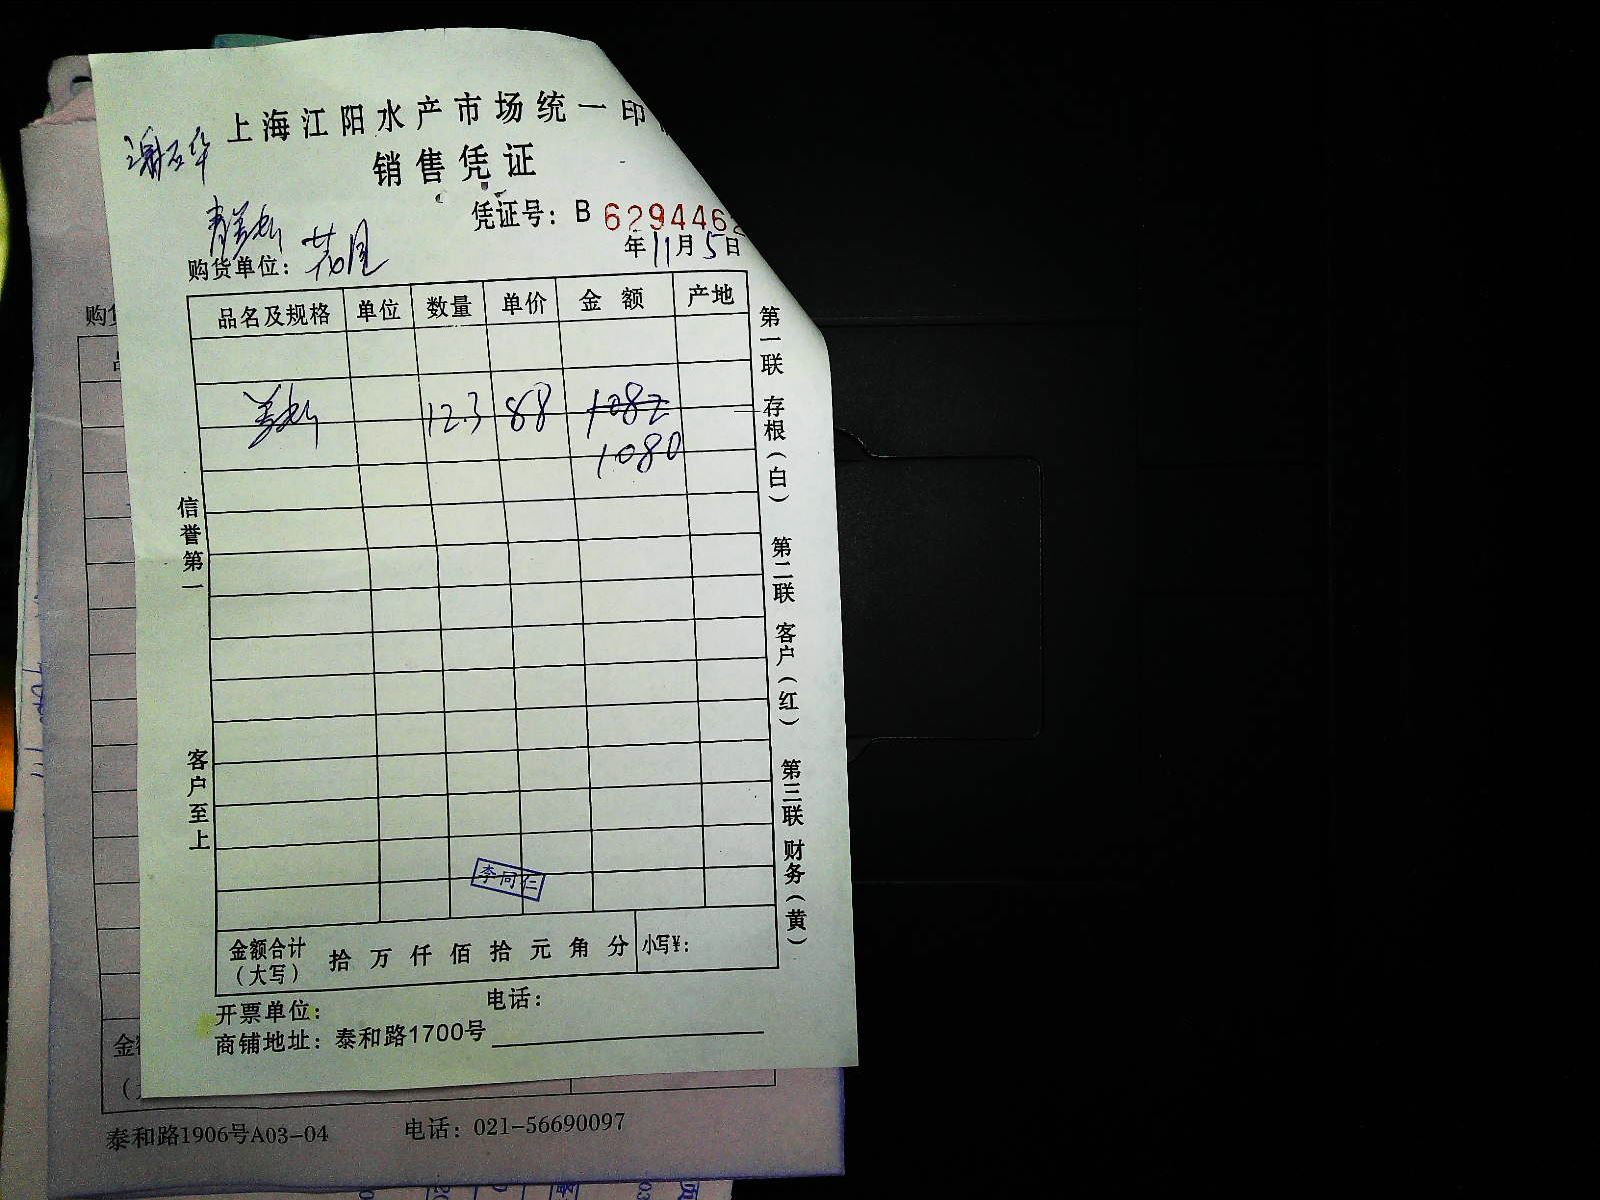 上海江阳水产市场统一印
销售凭证
凭证号：B 629446
年11月5日
购货单位：
品名及规格 单位 数量 单价 金额 产地
12.3 88 1082
1080
信誉第一
客户至上
第一联 存根（白） 第二联 客户（红） 第三联 财务（黄）
李同仁
金额合计（大写） 拾 万 仟 佰 拾 元 角 分 小写¥：
开票单位： 电话：
商铺地址：泰和路1700号
泰和路1906号A03-04 电话：021-56690097